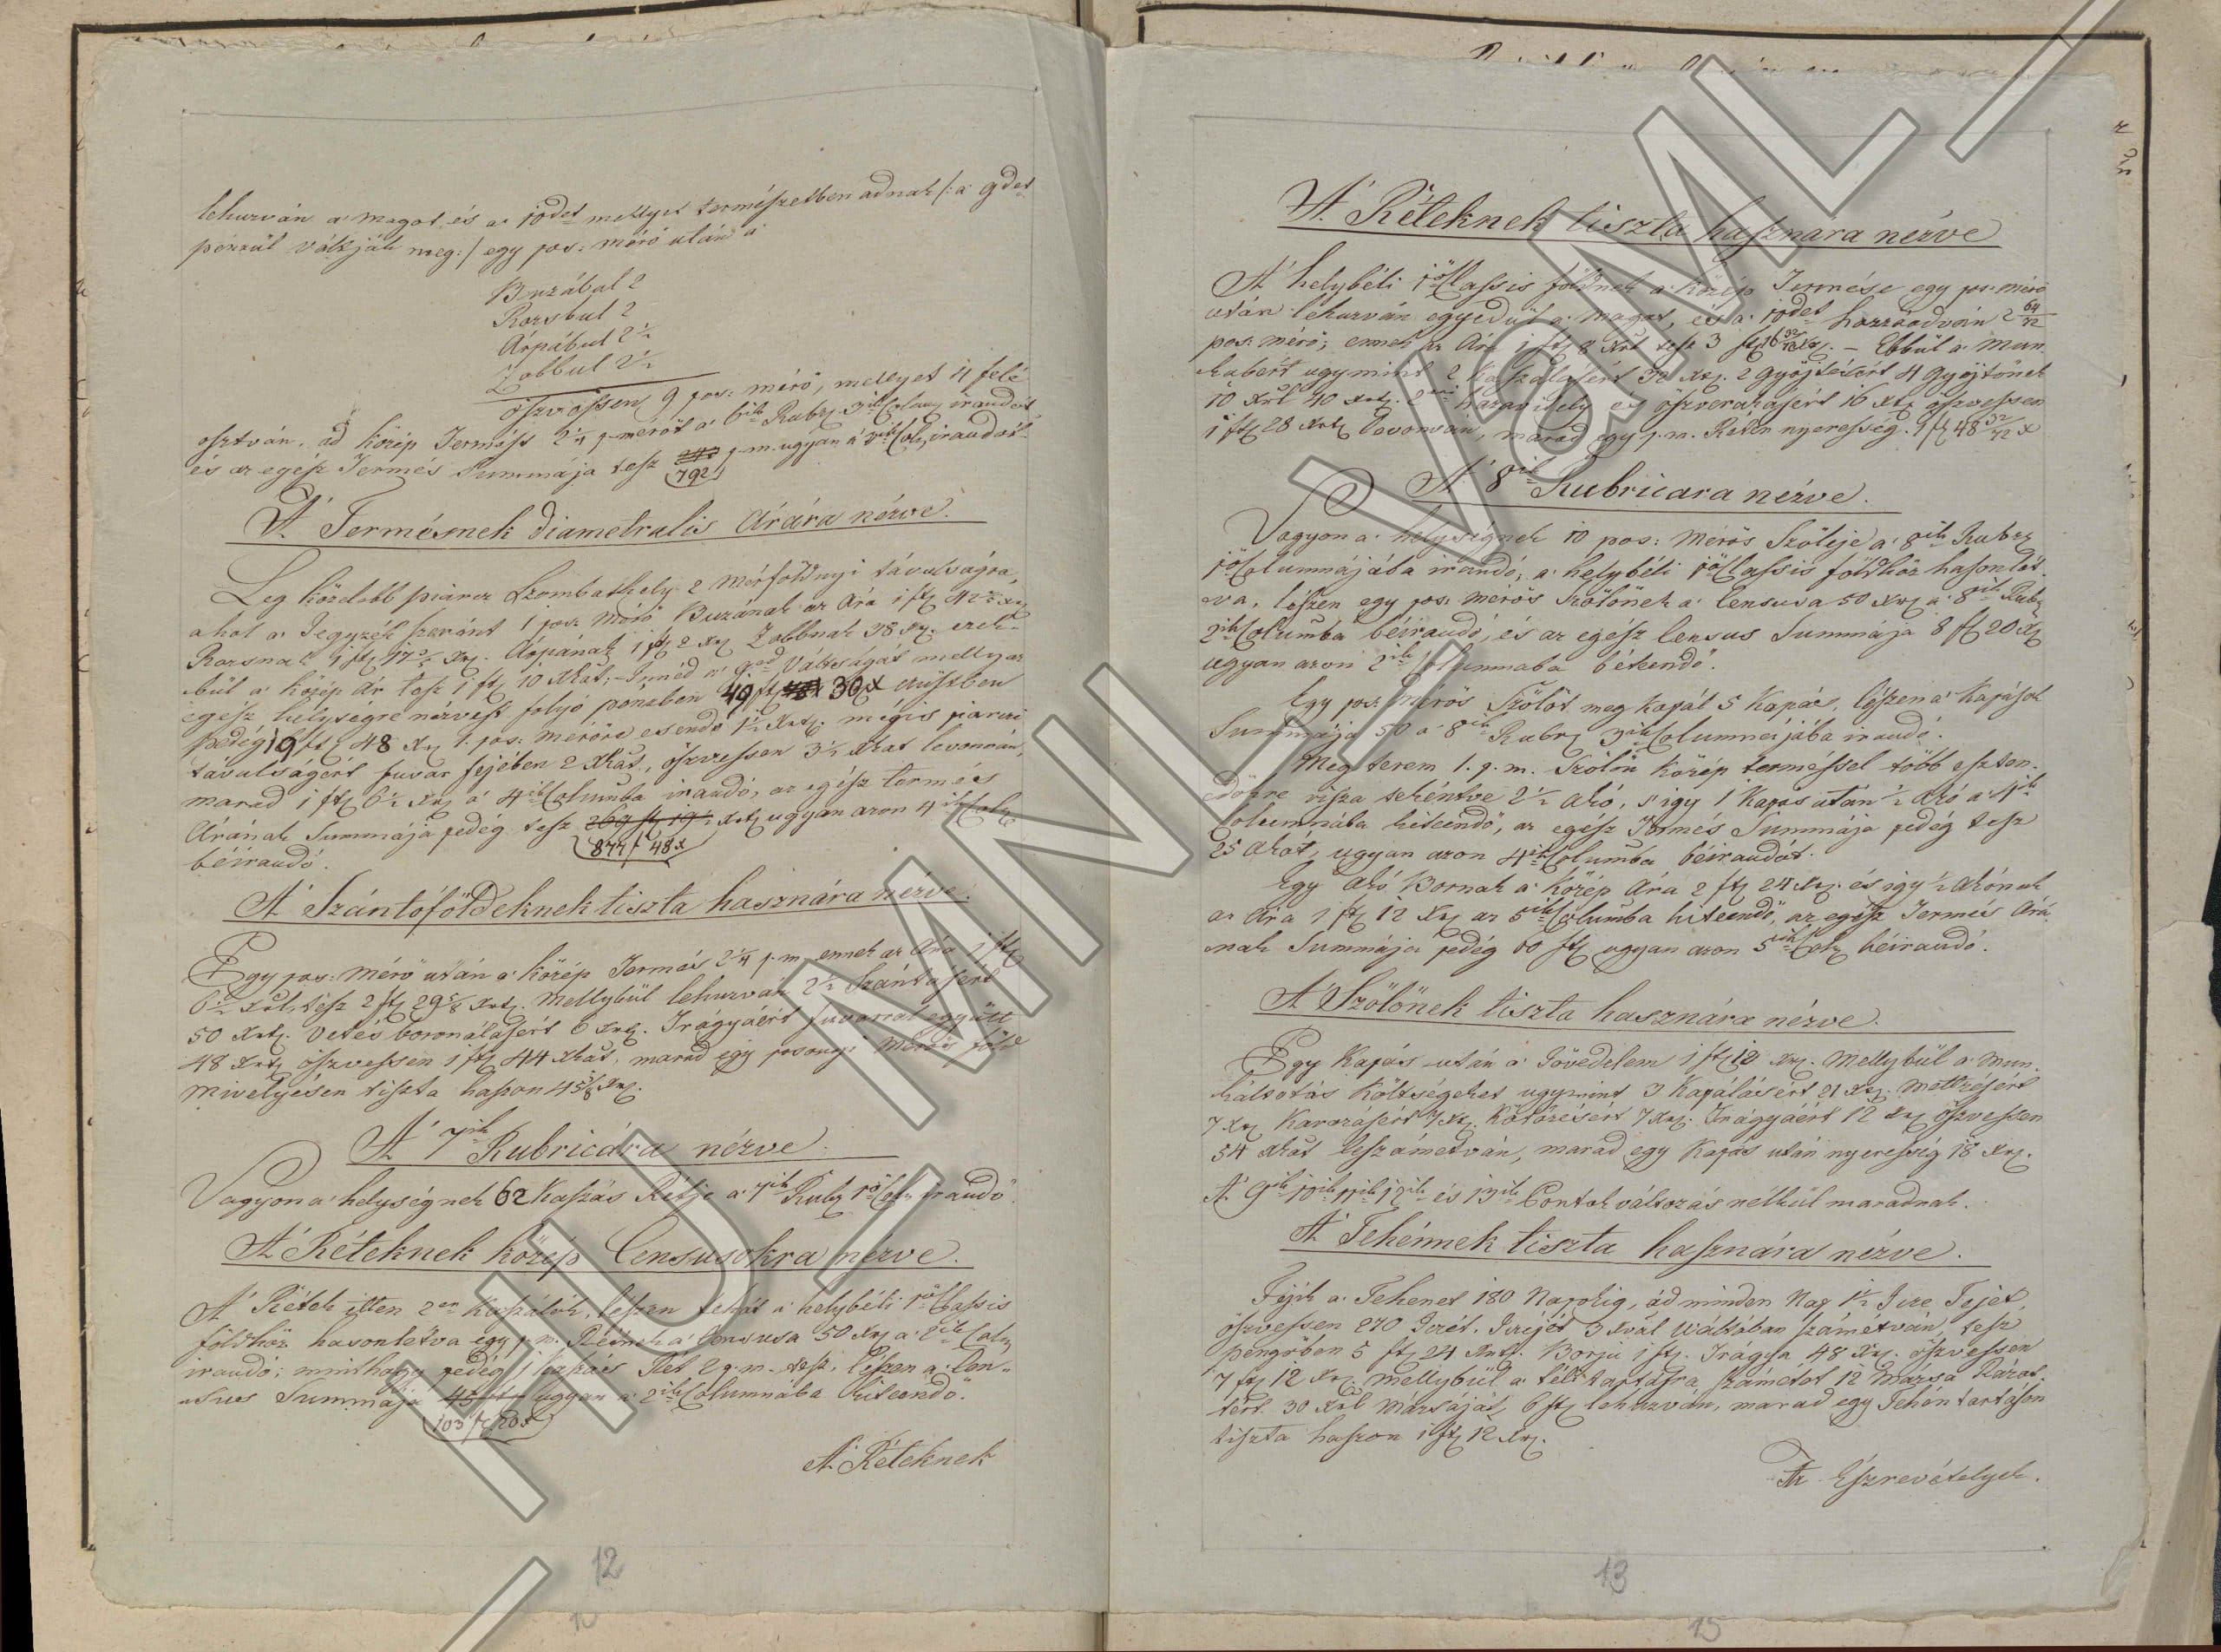 lehuzván a' magot és a' 10det mellyet természetben adnak /: a' 9det
pénzül váltják meg :/ egy pos: mérő után a'
Buzábul 2
Rozsbul 2
Árpábul 2½
Zabbul 2½
öszvössen 9 pos: mérő, mellyet 4 felé
osztván, ád közép Termést 2¼ p. mérőt a' 6ik Rubr. 3ik Colum. irandót
és az egész Termés Summája tesz p. m. ugyan a' 3ik Col. irandót
792
A' Termésnek diametralis Árára nézve.
Leg közelebb piarcz Szombathely 2 mérföldnyi távulságra,
ahol a' Jegyzék szerént 1 pos: mérő Buzának az Ára 1 ft 42 xr
Rozsnak 1 ft 17 xr. Árpának 1 ft 2 xr Zabbnak 38 xr. ezek-
bül a' közép Ár tesz 1 ft 10 xkát; Innéd a' 9ed Váltságát melly az
egész helységre nézvest folyó pénzben 49 ft 30 x ezüstben
pedég 19 ft 48 xr 1. pos: mérőre esendő 1½ xrt. mégis piarczi
távulságért fuvar fejében 2 xkát, öszvessen 3½ xkat levonván,
marad 1 ft 6½ xr a' 4ik Columba irandó, az egész termés
Árának Summája pedég tesz 269 ft 19½ xrt ugyan azon 4ik Colu
877 f 48 x
béirandó.
A' Szántóföldeknek tiszta hasznára nézve.
Egy pos: mérő után a' közép Termés 2¼ p. m. ennek az Ára 1 ft
6½ xrt, tész 2 ft 29⅝ xrt. Mellybül lehuzván 2½ Szántásért
50 xrt. Vetés boronálásért 6 xrt. Trágyáért fuvarral együtt
48 xrt öszvessen 1 ft 44 xkát, marad egy posonyi Mérős föld
mivelyésen tiszta haszon 45⅝ xr.
A' 7ik Rubricára nézve.
Vagyon a' helységnek 62 Kaszás Rétje a' 7ik Rubr 1ő Col. irandó.
A' Réteknek közép Censusokra nézve.
A' Rétek itten 2er Kaszálók, lészen tehát a' helybéli 1ő Classis
földhöz hasonlétva egy p. m. Rétnek a' Censusa 50 xr a' 2ik Colu
irandó; minthogy pedég 1 kaszás Rét 2 p. m. tesz, lészen a' Cen-
sus Summája ugyan a' 2ik Columnába kiteendő.
103 ft 20 x
A' Réteknek
12
A' Réteknek tiszta hasznára nézve
A' helybéli 1ő Classis földnek a' közép Termése egy po: mérő
után lehuzván egyedül a' magot, és a' 10det hozzáadván 2 64/72
pos: mérő; ennek az Ára 1 ft 8 xrt tesz 3 ft 16 32/72 xr. – Ebbül a' mun-
kabért ugymint 2 Kaszálásért 32 xr. 2 gyöjtésért 4 Gyöjtőnek
10 xrt 40 xrt. 2 és öszverakásért 16 xr öszvessen
1 ft 28 xrt levonván, marad egy p. m. Réten nyeresség. 1 f 48 32/72 x
A' 8ik Rubricara nézve.
Vagyon a' helységnek 10 pos: Mérős Szőleje a' 8ik Rubr
1ő Columnájába irandó, a' helybéli 1ő Classis földhöz hasonlét-
va, lészen egy pos. mérős Szőlőnek a' Censusa 50 xr a' 8ik Rubr
2ik Columba béirandó, és az egész Census Summája 8 ft 20 xr
ugyan azon 2ik Columnaba bétendő.
Egy pos: mérős Szőlőt meg kapál 5 Kapás, lészen a' Kapások
Summája 50 a' 8ik Rubr 3ik Columnájába irandó.
Meg terem 1. p. m. Szőlőn közép terméssel több eszten-
dőkre vissza tekéntve 2½ Akó, s' igy 1 Kapás után ½ Akó a' 4ik
Columnába kiteendő, az egész Termés Summája pedég tesz
25 Akót, ugyan azon 4ik Columba béirandót.
Egy Akó Bornak a' közép Ára 2 ft 24 xr. és igy ½ Akónak
az Ára 1 ft 12 xr az 5ik Columba kiteendő, az egész Termés Árá-
nak Summája pedég 60 ft ugyan azon 5ik Col. béirandó.
A' Szőlőnek tiszta hasznára nézve.
Egy Kapás után a' Jövedelem 1 ft 12 xr. Mellybül a' Mun-
káltotás költségeket ugymint 3 Kapálásért 21 xr. Mettzésért
7 xr Karozásért 7 xr. Kötözésért 7 xr. Trágyáért 12 xr öszvessen
54 xkat leszámétván, marad egy Kapás után nyeresség 18 xr.
A' 9ik 10ik 11ik 12ik és 13ik Pontok változás nélkül maradnak.
A' Tehénnek tiszta hasznára nézve.
Fejik a' Tehenet 180 Napokig, ád minden Nap 1½ Icze Tejet,
öszvessen 270 Iczét. Iczéjét 3 xrál Váltóban számétván, tesz
pengőben 5 ft 24 xrt. Borju 1 ft. Trágya 48 xr. öszvessen
7 ft 12 xr. mellybül a' téli tartásra számétot 12 Mázsa
30 xrt Mázsáját, 6 ft lehuzván, marad egy Tehén tartáson
tiszta haszon 1 ft 12 xr.
Az Észrevételyek.
13
15
HU MNL VaML